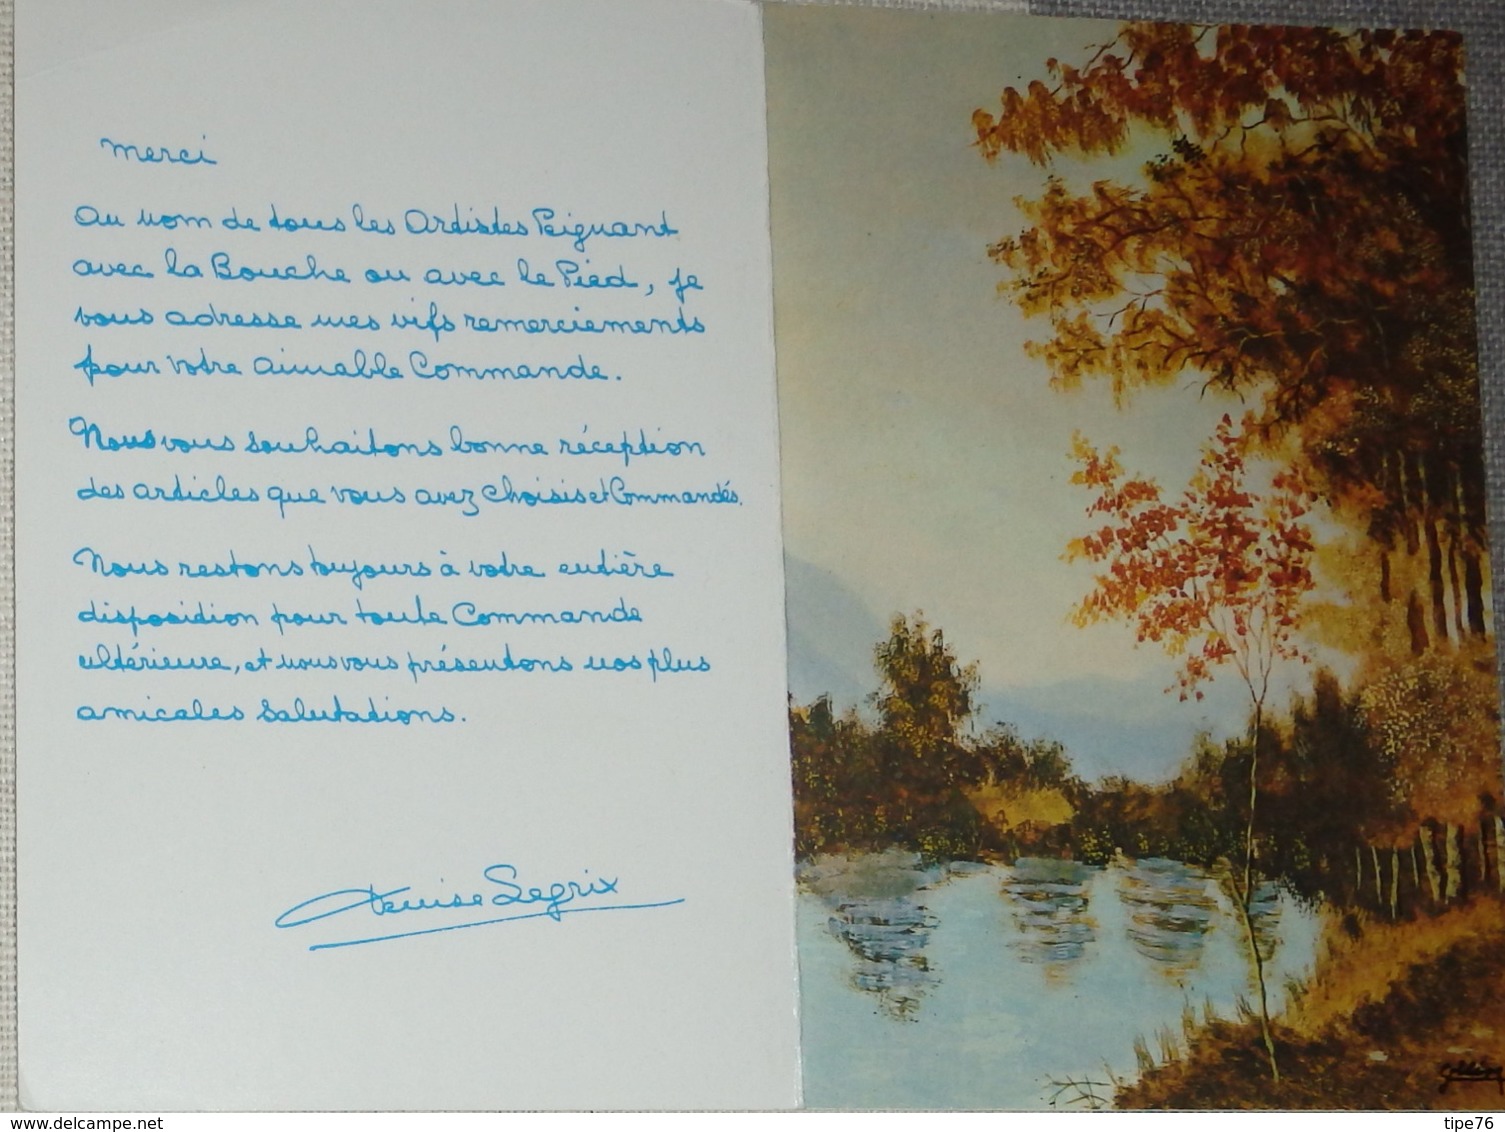 merci
Au nom de tous les Artistes Peignant
avec la Bouche ou avec le Pied, je
vous adresse mes vifs remerciements
pour votre aimable Commande.
Nous vous souhaitons bonne réception
des articles que vous avez Choisis et Commandés.
Nous restons toujours à votre entière
disposition pour toute Commande
ultérieure, et nous vous présentons nos plus
amicales salutations.
Denise Legrix
www.delcampe.net
tipe76